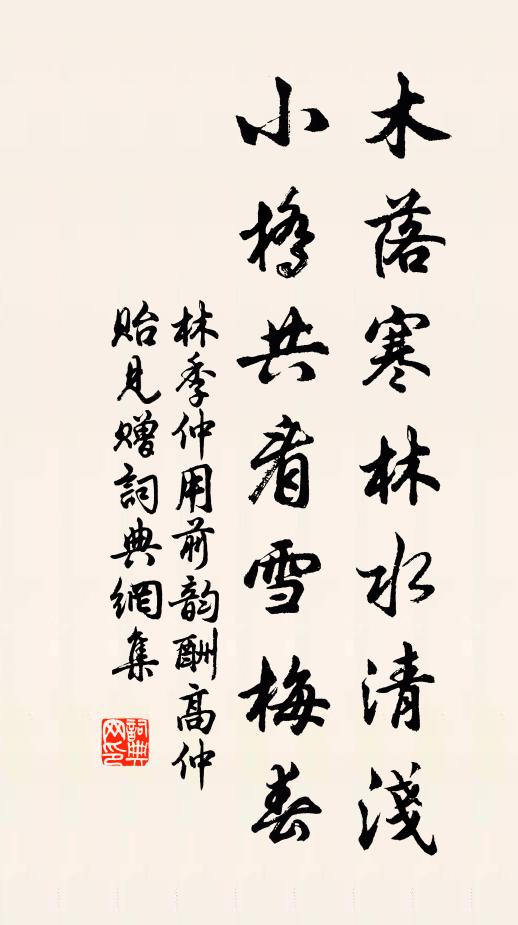 木落寒林水清淺
小橋共看雪梅春
林季仲用前韵酬高仲
貽見贈詞典網集
詞典网印